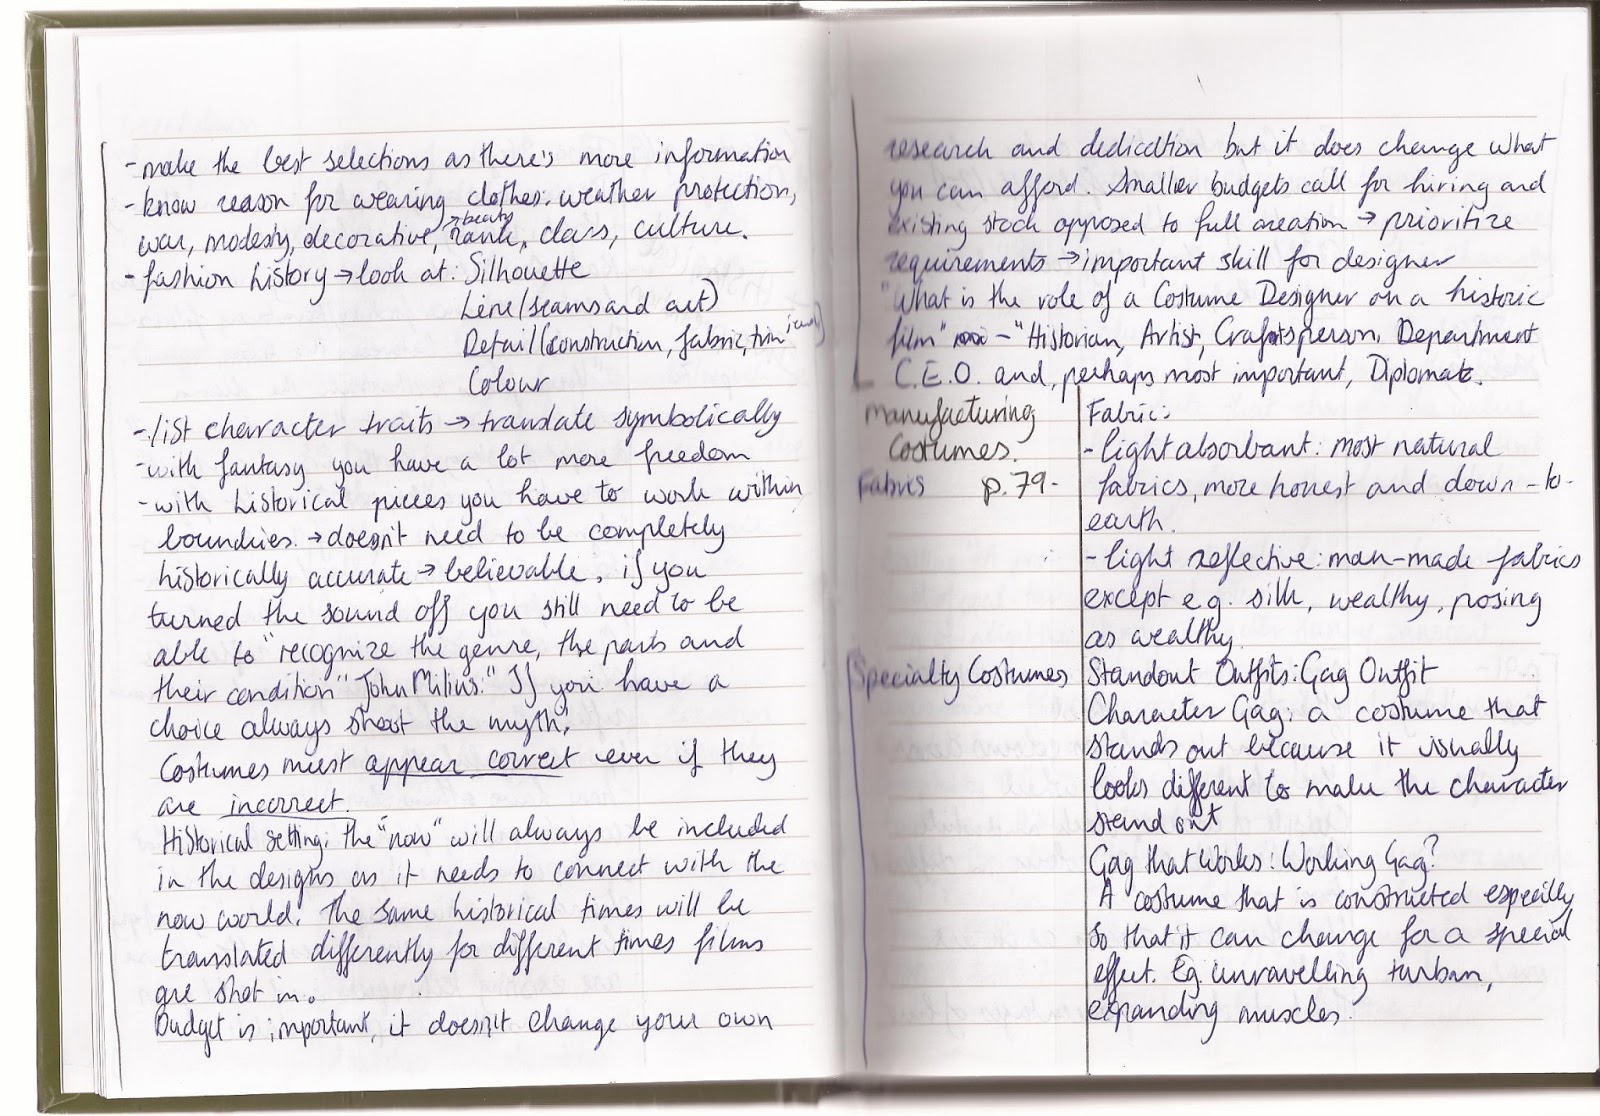 - make the best selections as there's more information
- know reason for wearing clothes: weather protection,
war, modesty, decorative, → beauty rank, class, culture.
- fashion history → look at: Silhouette
Line (seams and cut)
Detail (construction, fabric, trim
Colour
- list character traits → translate symbolically
- with fantasy you have a lot more freedom
- with historical pieces you have to work within
boundries. → doesn't need to be completely
historically accurate → believable, if you
turned the sound off you still need to be
able to "recognize the genre, the parts and
their condition" John Milius: "If you have a
choice always shoot the myth."
Costumes must appear correct even if they
are incorrect.
Historical setting: the "now" will always be included
in the designs as it needs to connect with the
now world. The same historical times will be
translated differently for different times films
are shot in.
Budget is important, it doesn't change your own
research and dedication but it does change what
you can afford. Smaller budgets call for hiring and
existing stock opposed to full creation → prioritize
requirements → important skill for designer
"What is the role of a Costume Designer on a historic
film" - "Historian, Artist, Craftsperson, Department
C.E.O. and, perhaps most important, Diplomat.
Manufacturing
Costumes.
Fabrics p.79-
Fabric:
- light absorbant: most natural
fabrics, more honest and down-to-
earth.
- light reflective: man-made fabrics
except e.g. silk, wealthy, posing
as wealthy.
Specialty Costumes
Standout Outfits: Gag Outfit
Character Gag: a costume that
stands out because it usually
looks different to make the character
stand out
Gag that Works: Working Gag?
A costume that is constructed especilly
so that it can change for a special
effect. Eg. unravelling turban,
expanding muscles.